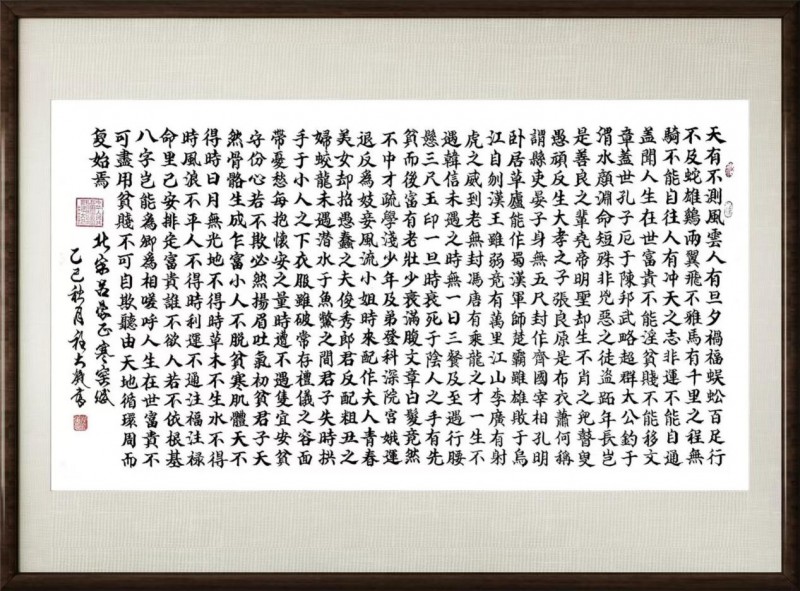 天有不測風雲人有旦夕禍福蜈蚣百足行
不及蛇雄鷄兩翼飛不雅馬有千里之程無
騎不能自往人有冲天之志非運不能自通
盖聞人生在世富貴不能淫貧賤不能移文
章盖世孔子厄于陳邦武略超群太公釣于
渭水顏淵命短殊非兇惡之徒盗跖年長岂
是善良之輩堯帝明聖却生不肖之兒瞽叟
愚頑反生大孝之子張良原是布衣蕭何稱
謂縣吏晏子身無五尺封作齊國宰相孔明
卧居草廬能作蜀漢軍師楚霸雖雄敗于烏
江自刎漢王雖弱竟有萬里江山李廣有射
虎之威到老無封馮唐有乘龍之才一生不
遇韓信未遇之時無一日三餐及至遇行腰
懸三尺玉印一旦時衰死于陰人之手有先
貧而後富有老壯少衰滿腹文章白髮竟然
不中才疏學淺少年及弟登科深院宫娥運
退反為妓妾風流小姐時來配作夫人青春
美女却招愚蠢之夫俊秀郎君反配粗丑之
婦蛟龍未遇潜水于魚鱉之間君子失時拱
手于小人之下衣服雖破常存禮儀之容面
帶憂愁每抱懷安之量時遭不遇隻宜安貧
守份心若不欺必然揚眉吐氣初貧君子天
然骨骼生成乍富小人不脱貧寒肌體天不
得時日月無光地不得時草木不生水不得
時風浪不平人不得時利運不通注福注禄
命里已安排定富貴誰不欲人若不依根基
八字岂能為卿為相暖呼人生在世富貴不
可盡用貧賤不可自欺聽由天地循環周而
复始焉
北宋吕蒙正寒窑賦
乙巳秋月書